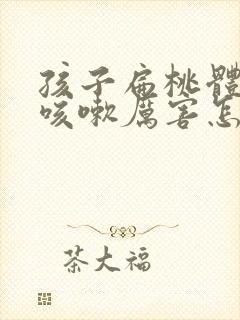 孩子扁桃體
咳嗽厲害怎
茶大福